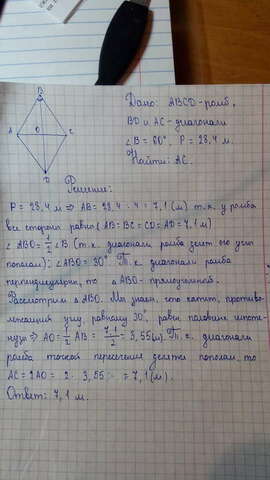 B
A O C
D
Дано: ABCD-ромб,
BD и AC-диагонали
∠B = 60°, P = 28,4 м.
Найти: AC.
Решение:
P = 28,4 м ⇒ AB = 28,4 : 4 = 7,1 (м) т.к. у ромба
все стороны равны (AB = BC = CD = AD = 7,1 м)
∠ABO = 1/2 ∠B (т.к. диагонали ромба делят его углы
пополам): ∠ABO = 30°. Т.к. диагонали ромба
перпендикулярны, то △ABO - прямоугольный.
Рассмотрим △ABO. Мы знаем, что катет, противо-
лежащий углу, равному 30°, равен половине гипоте-
нузы ⇒ AO = 1/2 AB = 7,1/2 = 3,55 (м). Т.к. диагонали
ромба точкой пересечения делятся пополам, то
AC = 2AO = 2 · 3,55 = 7,1 (м).
Ответ: 7,1 м.